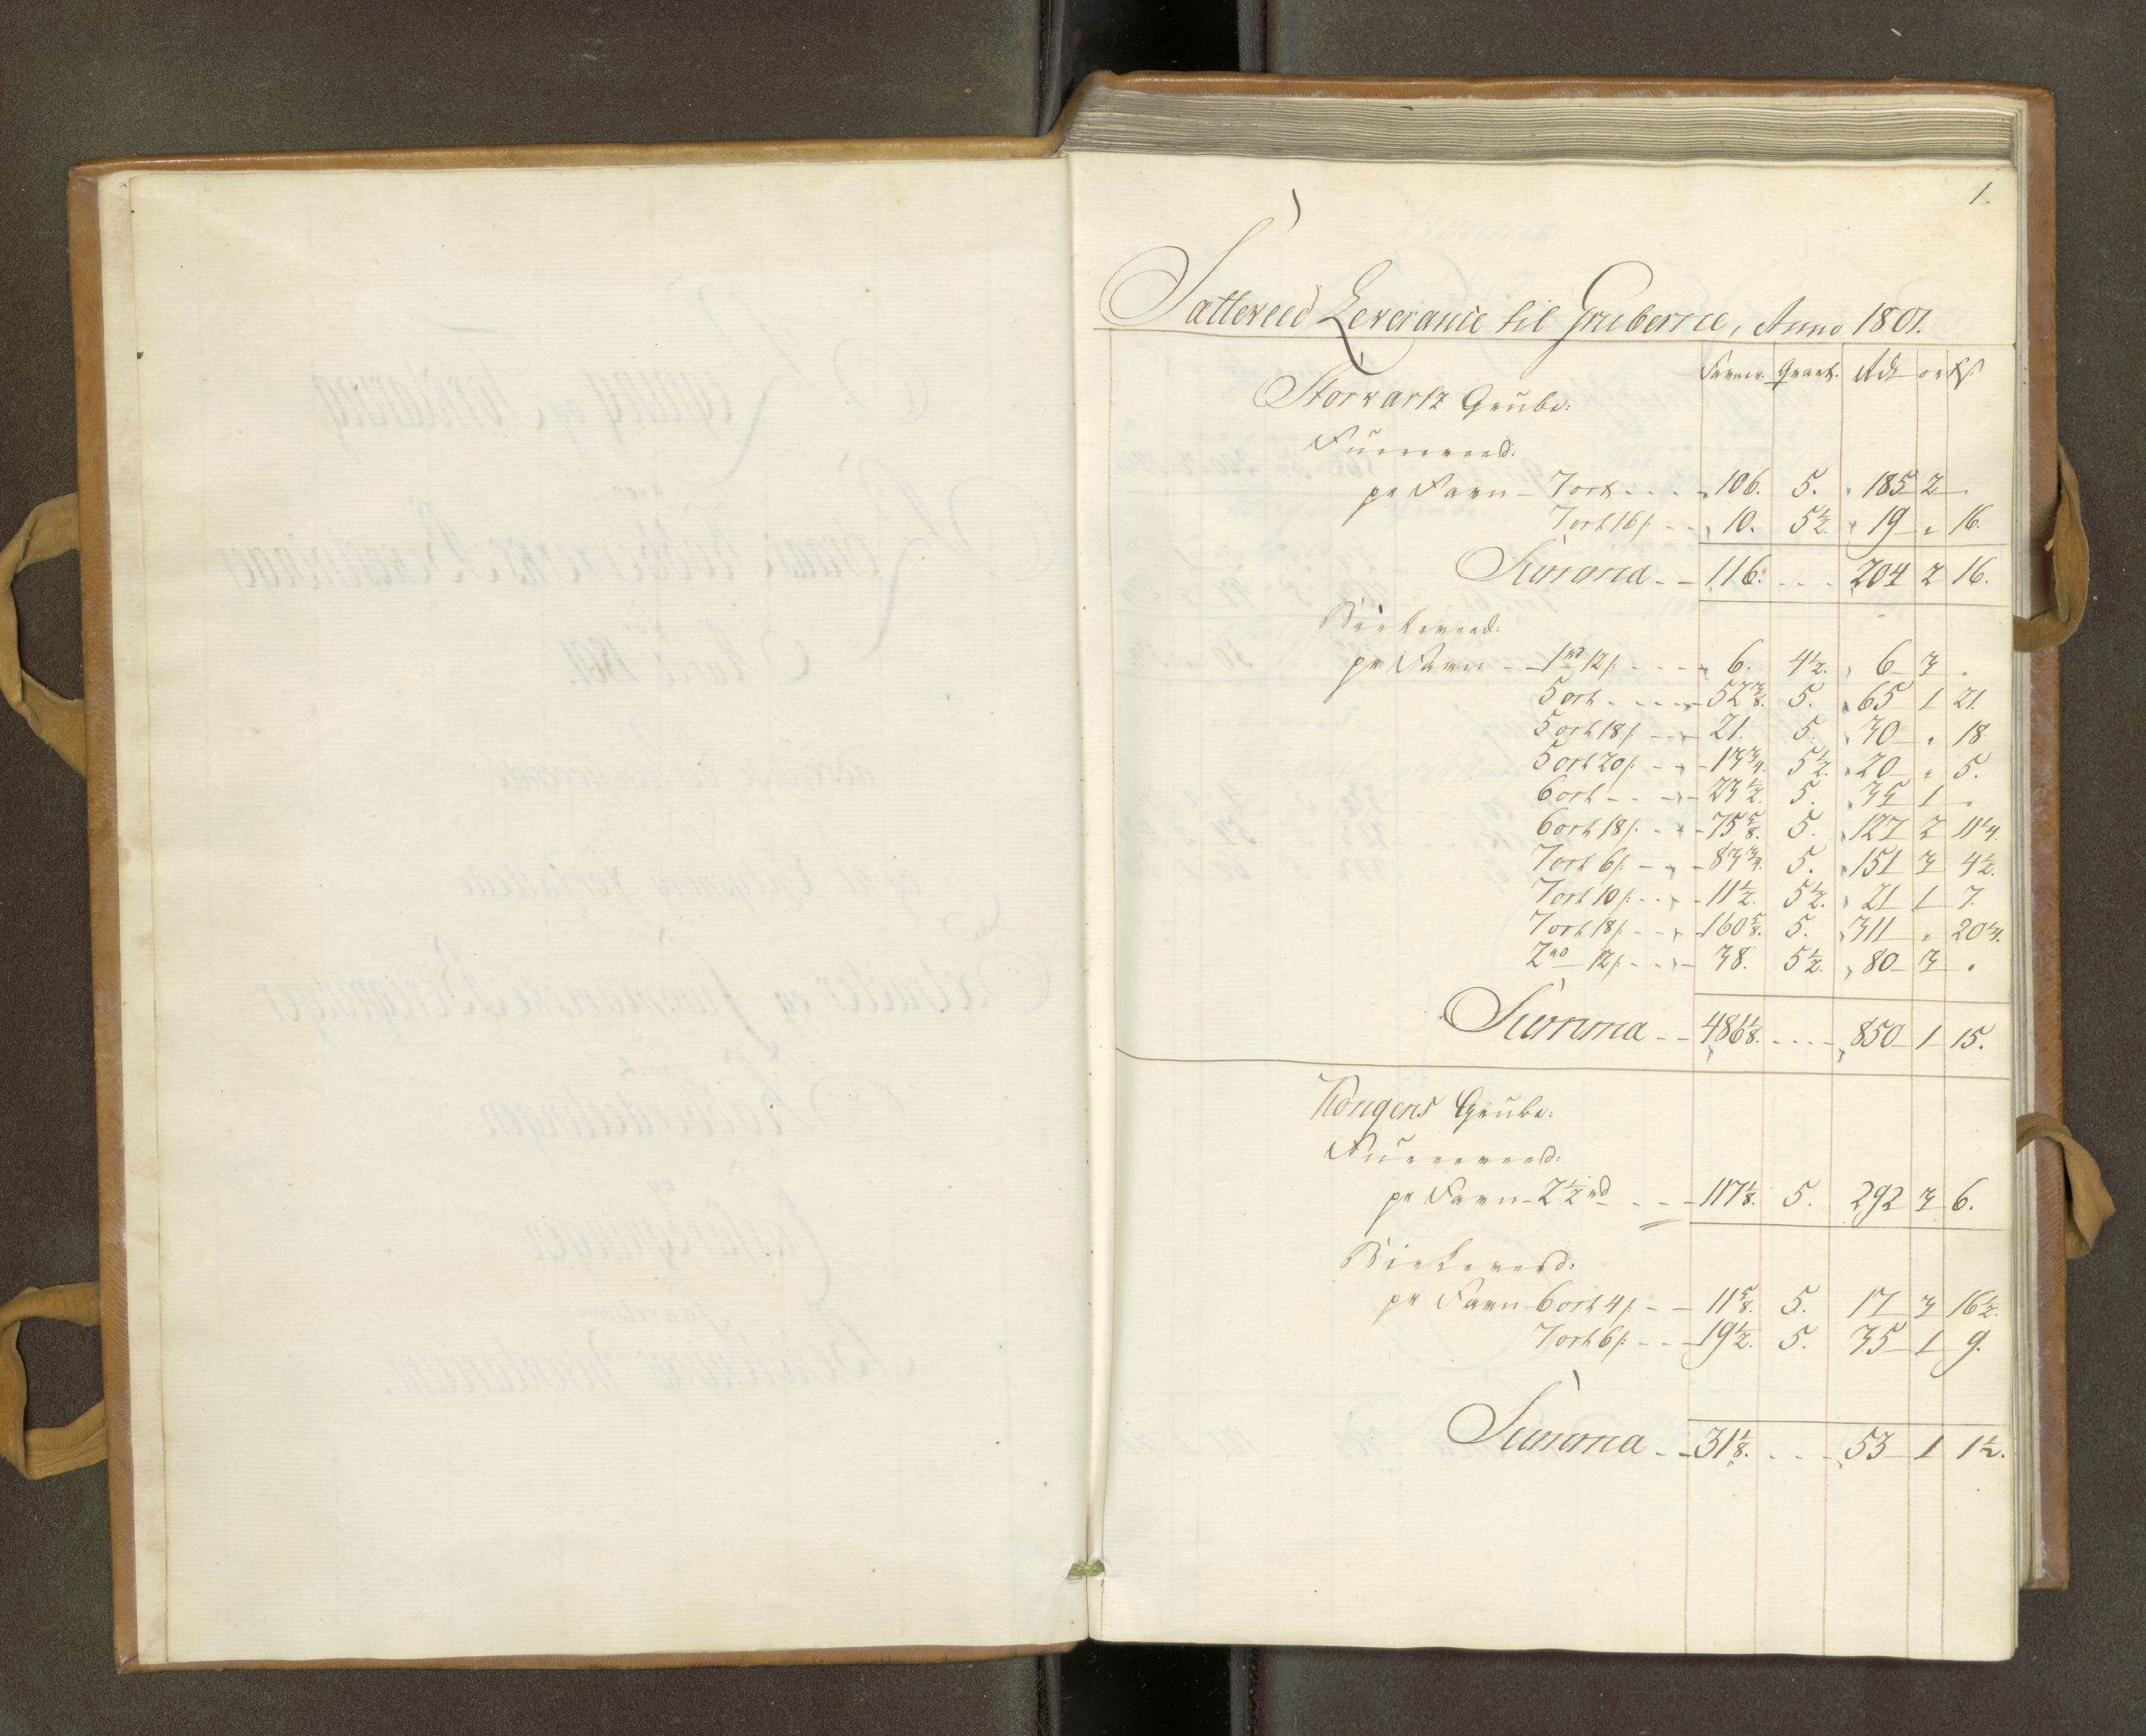 1.
Sætteveed Leverance til Gruberne, Anno 1801.
Favner. Qvart. Rdr ort ß
Storvartz Grube:
Fuurreveed:
pr Favn - 7 ort - - - - 106. 5. 185 2 .
7 ort 16 ß - - 10. 5 1/2. 19 " 16.
Summa - - 116. - - - 204 2 16.
Birkeveed:
pr Favn - - 1 rd 12 ß - - - - 6. 4 1/2. 6 3 .
5 ort - - - - - 52 3/8. 5. 65 1 21.
5 ort 18 ß - - - 21. 5. 30 " 18
5 ort 20 ß - - - 13 3/4. 5 1/2. 20 " 5.
6 ort - - - - 23 1/2. 5. 35 1 .
6 ort 18 ß - - - 75 5/8. 5. 127 2 11 1/4.
7 ort 6 ß - - - 83 3/4. 5. 151 3 4 1/2.
7 ort 10 ß - - - 11 1/2. 5 1/2. 21 1 7.
7 ort 18 ß - - - 160 5/8. 5. 311 " 20 1/4.
2 rd 12 ß - - - - 38. 5 1/2. 80 3 .
Summa - - 486 1/8. - - - - 850 1 15.
Kongens Grube:
Fuurreveed:
pr Favn - 2 1/2 rd - - - 117 1/8. 5. 292 3 6.
Birkeveed:
pr Favn 6 ort 4 ß - - 11 5/8. 5. 17 3 16 1/2.
7 ort 6 ß - - - 19 1/2. 5. 35 1 9.
Summa - - 31 1/8. - - - 53 1 1 1/2.